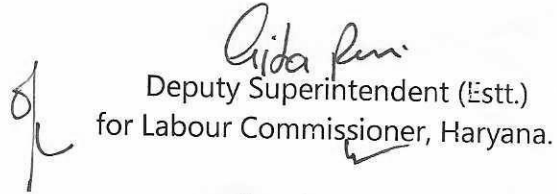 Deputy Superintendent (Estt.)
for Labour Commissioner, Haryana.